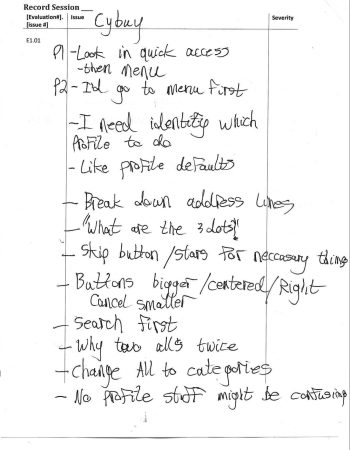 Record Session __
[Evaluation#]. Issue Cybuy Severity
[issue #]
E1.01
P1 - Look in quick access
- then menu
P2 - I'd go to menu first
- I need identity which
Profile to do
- Like profile defaults
- Break down address lines
- "What are the 3 dots"
- Skip button / stars for neccasary things
- Buttons bigger / centered / Right
Cancel smaller
- Search first
- Why two alls twice
- Change All to categories
- No profile stuff might be confusing